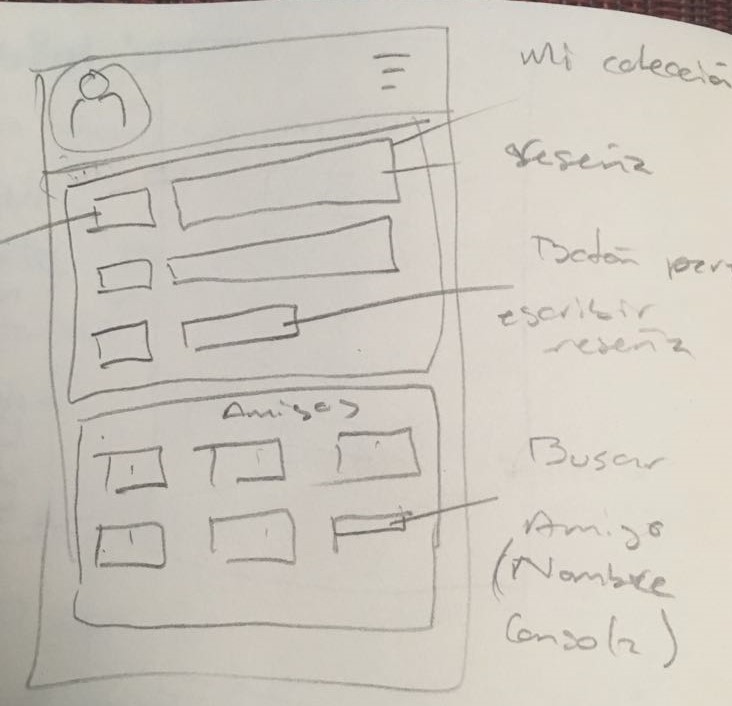 Mi colección
Reseña
Botón para
escribir
reseña
Amigos
Buscar
Amigo
(Nombre
Consola)